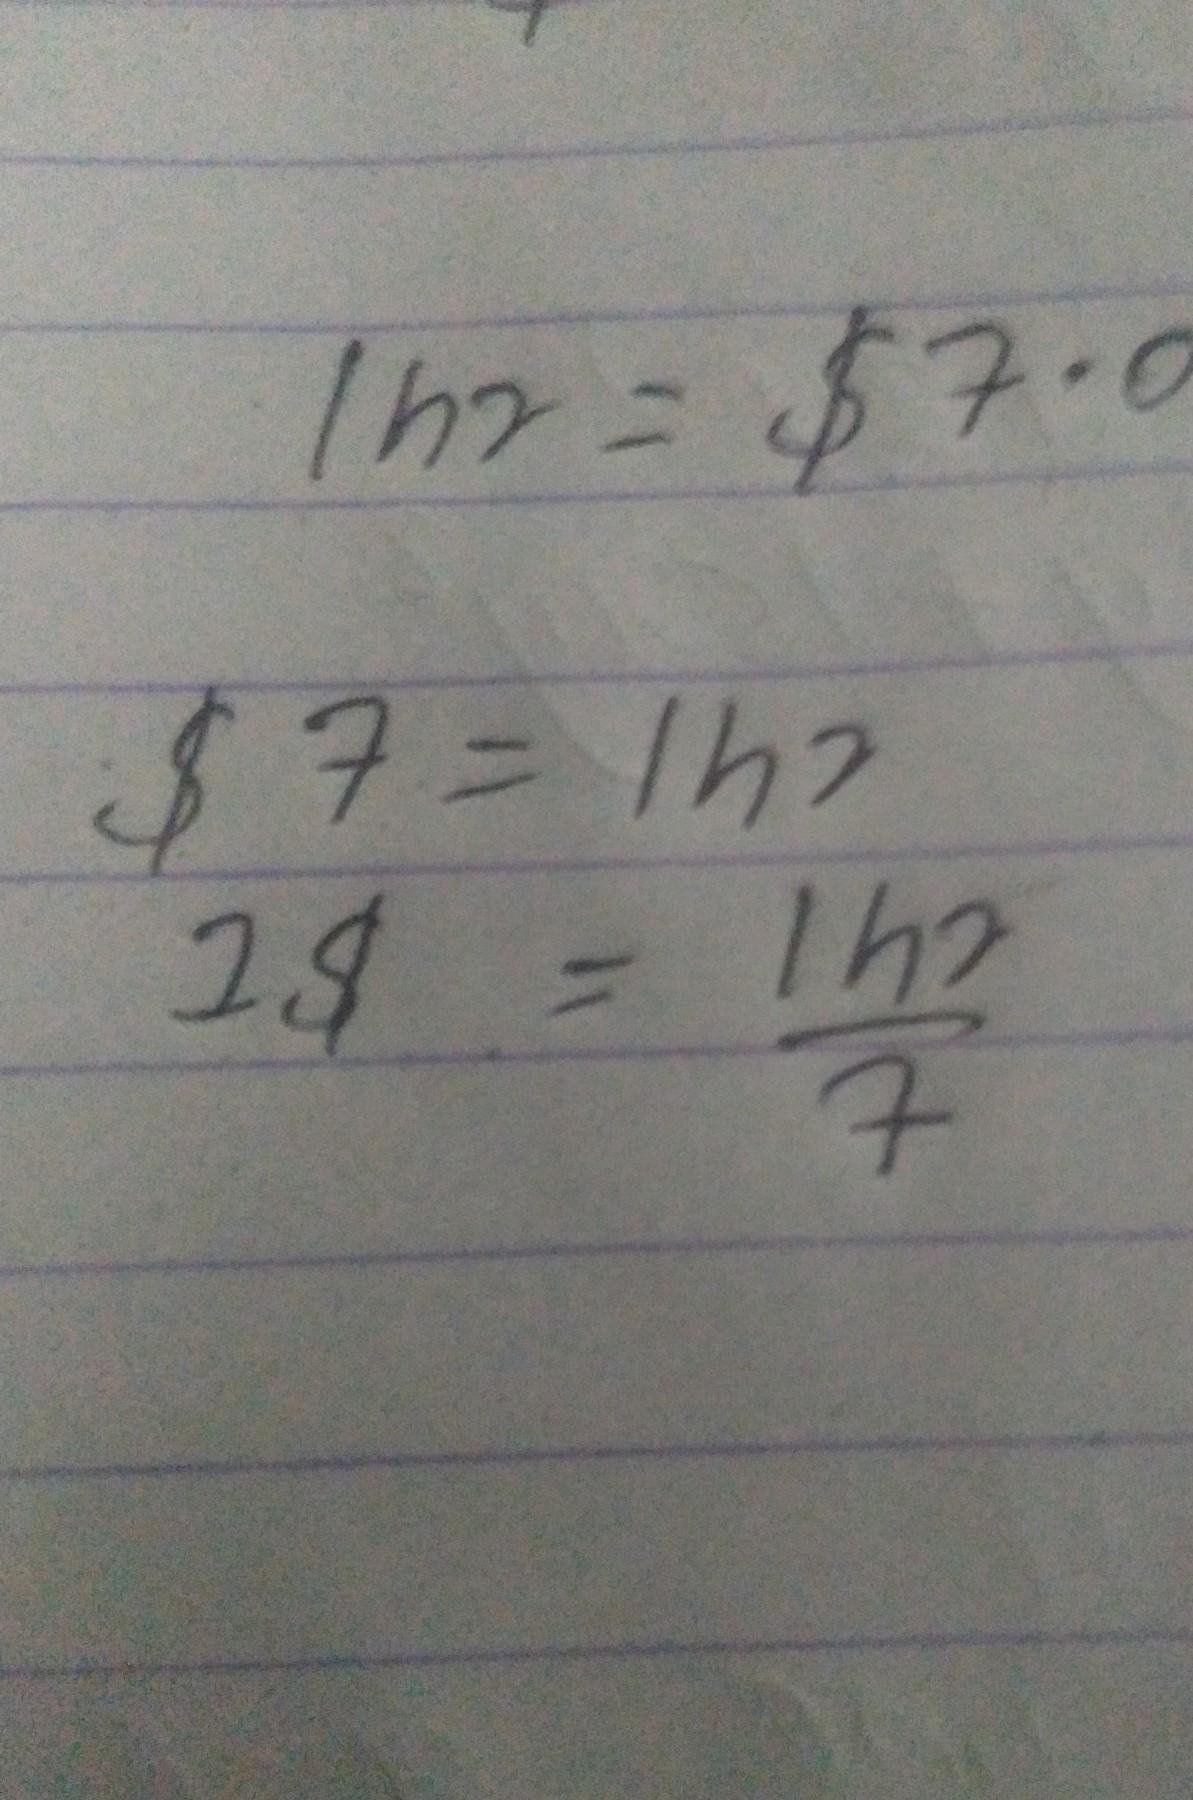 1hr = $7.0
$7 = 1hr
1$ = 1hr
7